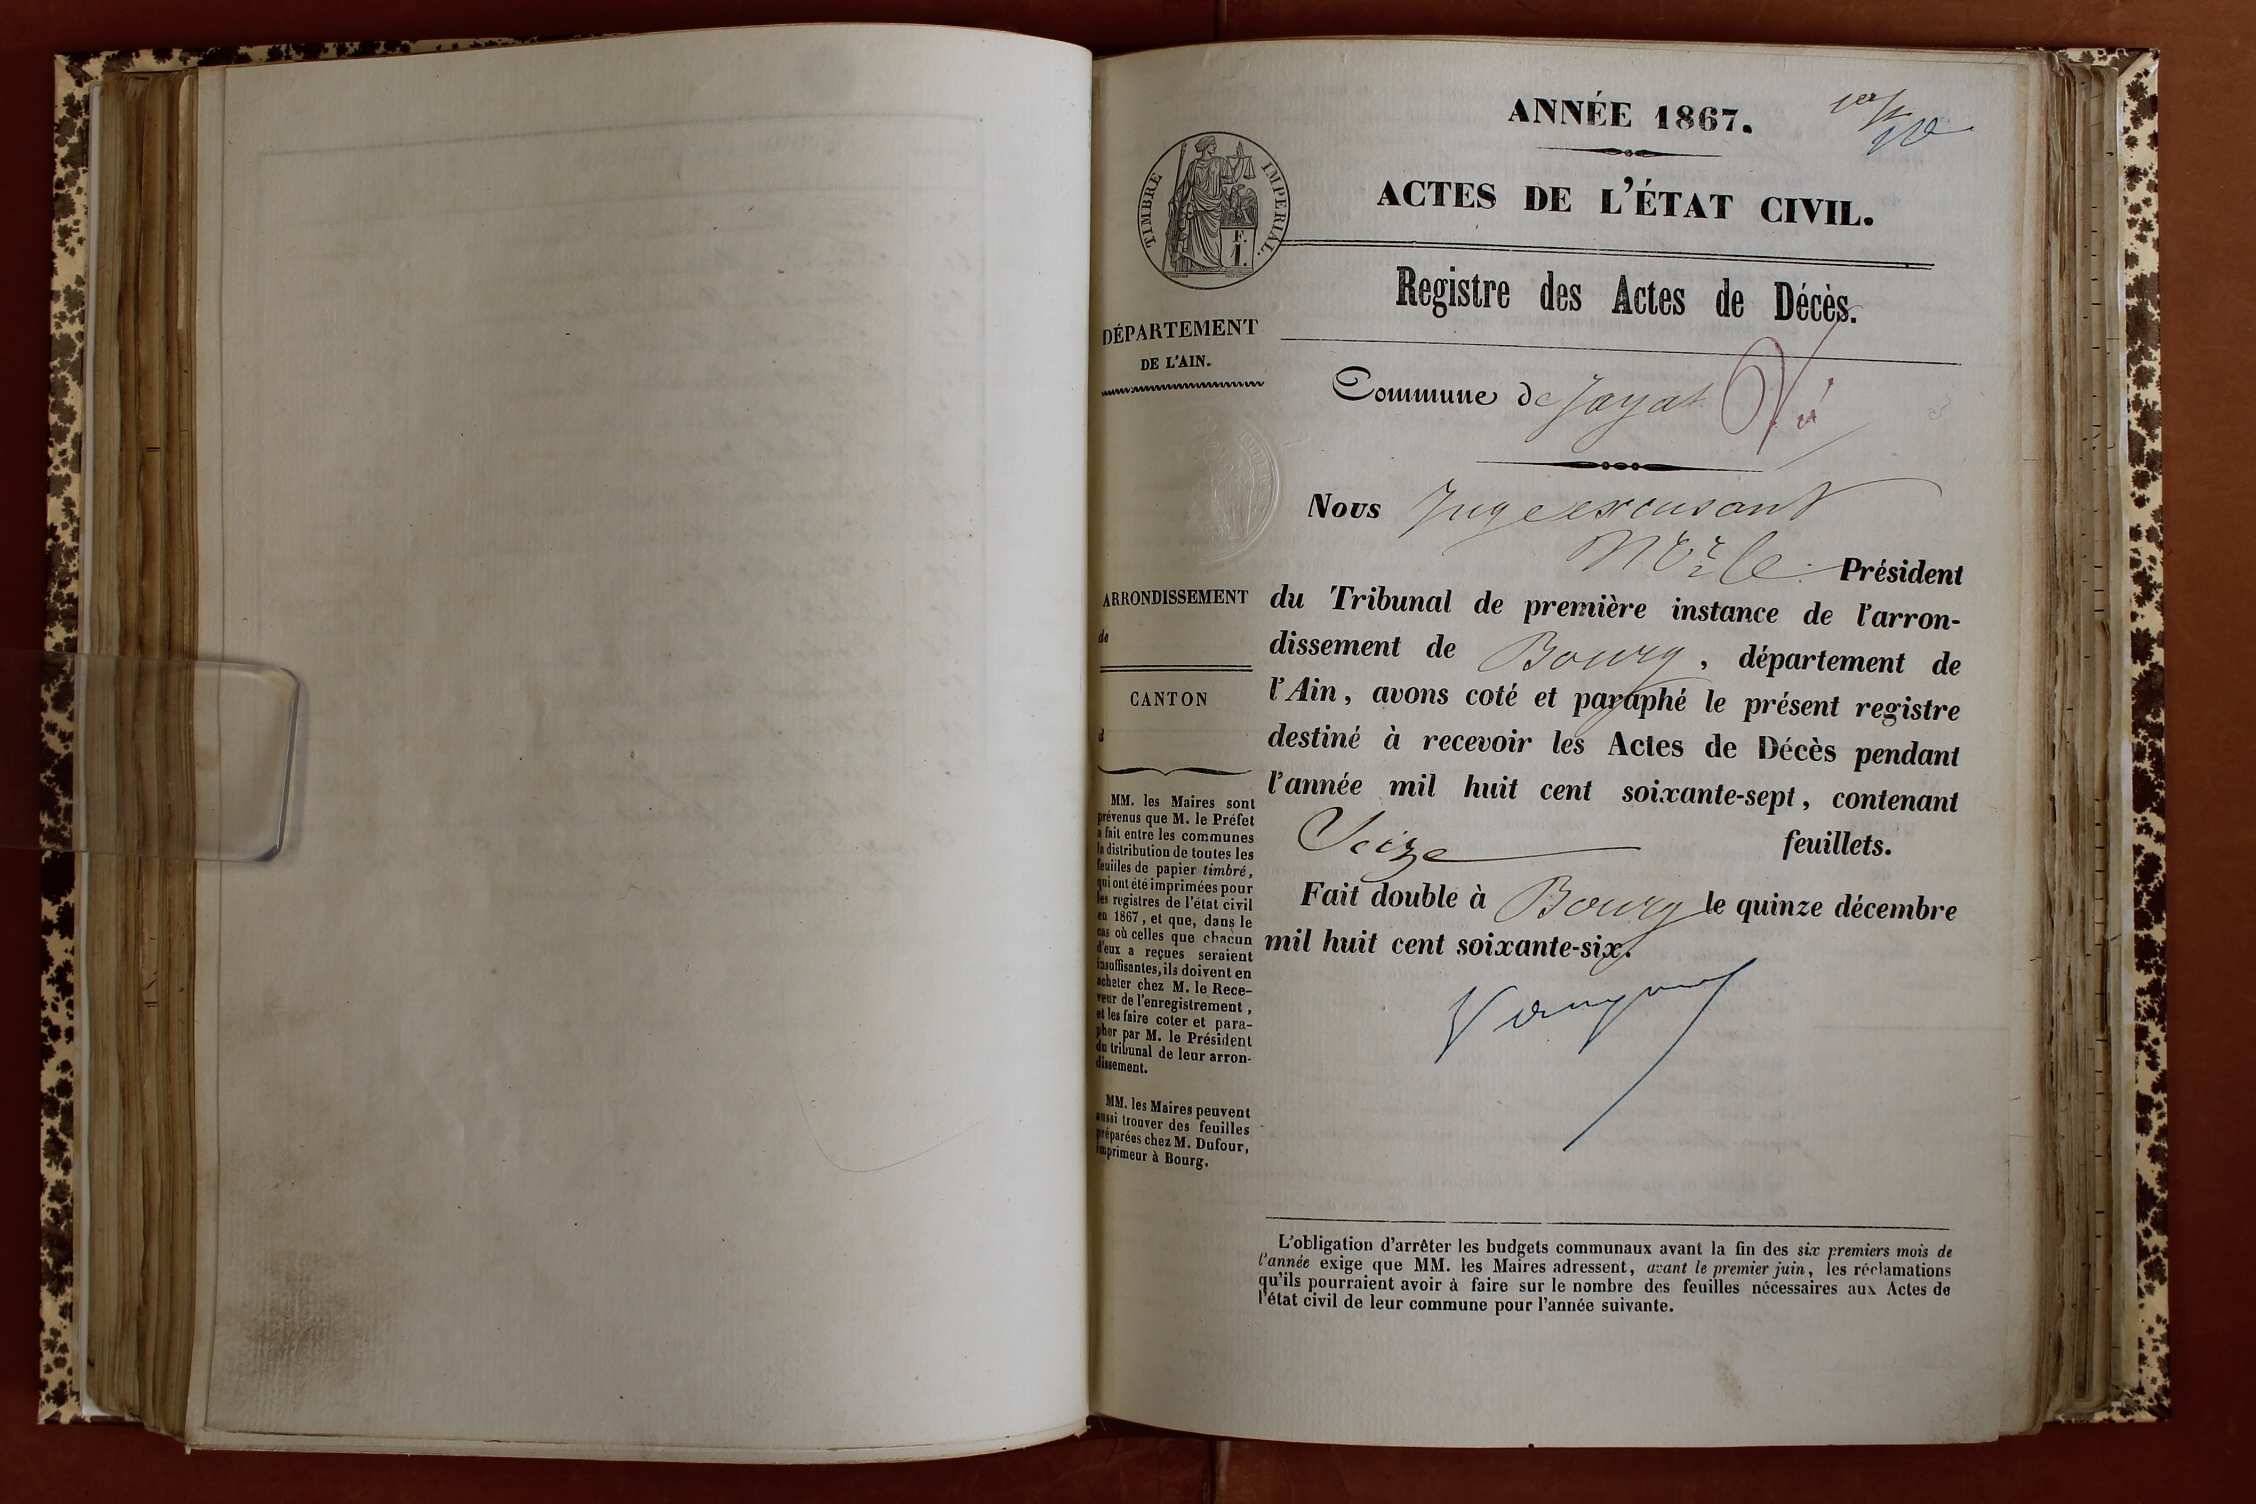 ANNÉE 1867.
ACTES DE L'ÉTAT CIVIL.
TIMBRE IMPERIAL.
F.
1.
Registre des Actes de Décès.
DÉPARTEMENT
DE L'AIN.
Commune de Jayat
Nous Juge excusant
Mr le Président
ARRONDISSEMENT
de
CANTON
d
du Tribunal de première instance de l'arron-
dissement de Bourg, département de
l'Ain, avons coté et paraphé le présent registre
destiné à recevoir les Actes de Décès pendant
l'année mil huit cent soixante-sept, contenant
Seize feuillets.
Fait double à Bourg le quinze décembre
mil huit cent soixante-six.
MM. les Maires sont
prévenus que M. le Préfet
a fait entre les communes
la distribution de toutes les
feuilles de papier timbré,
qui ont été imprimées pour
les registres de l'état civil
en 1867, et que, dans le
cas où celles que chacun
d'eux a reçues seraient
insuffisantes, ils doivent en
acheter chez M. le Rece-
veur de l'enregistrement,
et les faire coter et para-
pher par M. le Président
du tribunal de leur arron-
dissement.
MM. les Maires peuvent
aussi trouver des feuilles
préparées chez M. Dufour,
imprimeur à Bourg.
L'obligation d'arrêter les budgets communaux avant la fin des six premiers mois de
l'année exige que MM. les Maires adressent, avant le premier juin, les réclamations
qu'ils pourraient avoir à faire sur le nombre des feuilles nécessaires aux Actes de
l'état civil de leur commune pour l'année suivante.